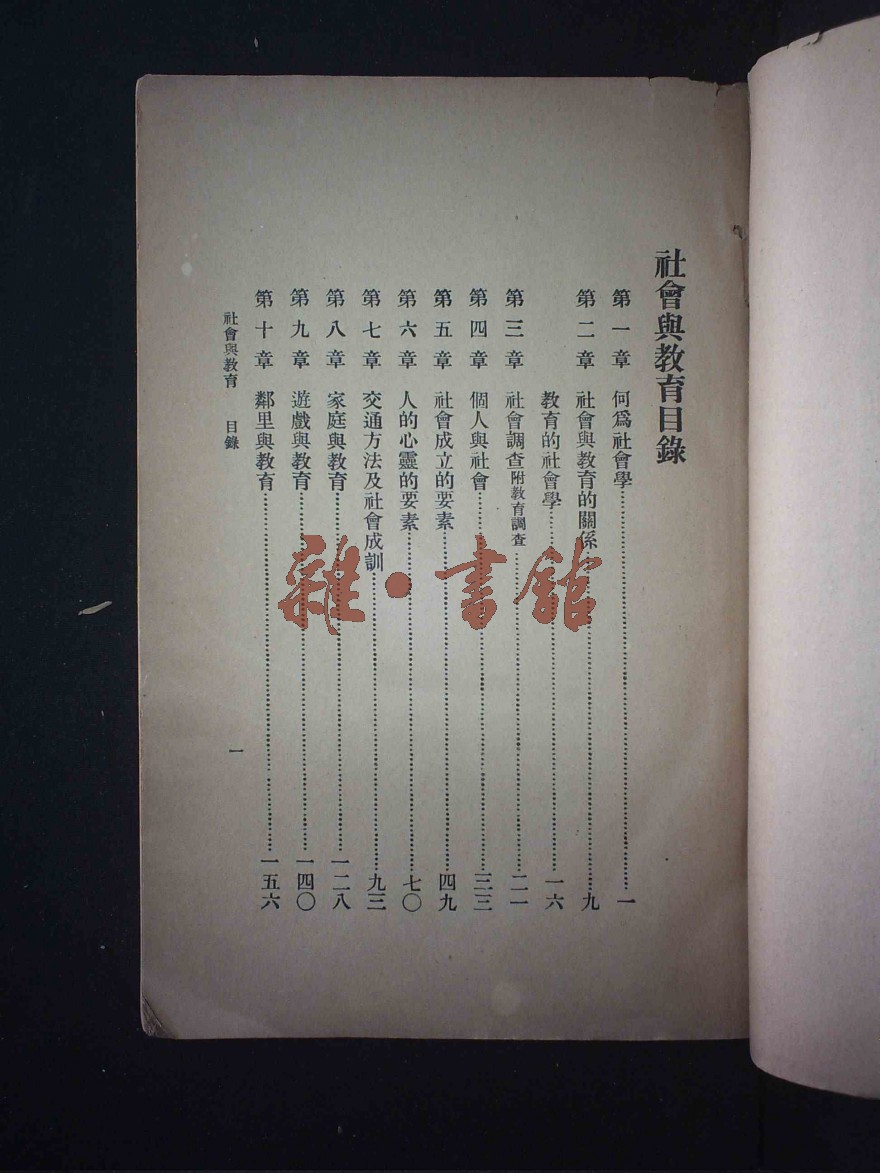 社會與教育目錄
第一章 何爲社會學……一
第二章 社會與教育的關係……九
教育的社會學……一六
第三章 社會調查附教育調查……二一
第四章 個人與社會……三三
第五章 社會成立的要素……四九
第六章 人的心靈的要素……七〇
第七章 交通方法及社會成訓……九三
第八章 家庭與教育……一二八
第九章 遊戲與教育……一四〇
第十章 鄰里與教育……一五六
社會與教育 目錄 一
雜·書館